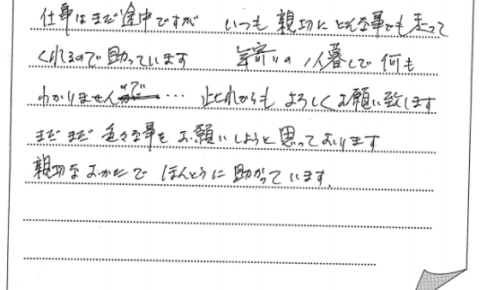 仕事はまだ途中ですが いつも親切にどんな事でも走って
くれるので助っています 年寄りの1人暮しで何も
わかりません… これからもよろしくお願い致します
まだまだ色々な事をお願いしようと思っております
親切なおかたでほんとうに助かっています。